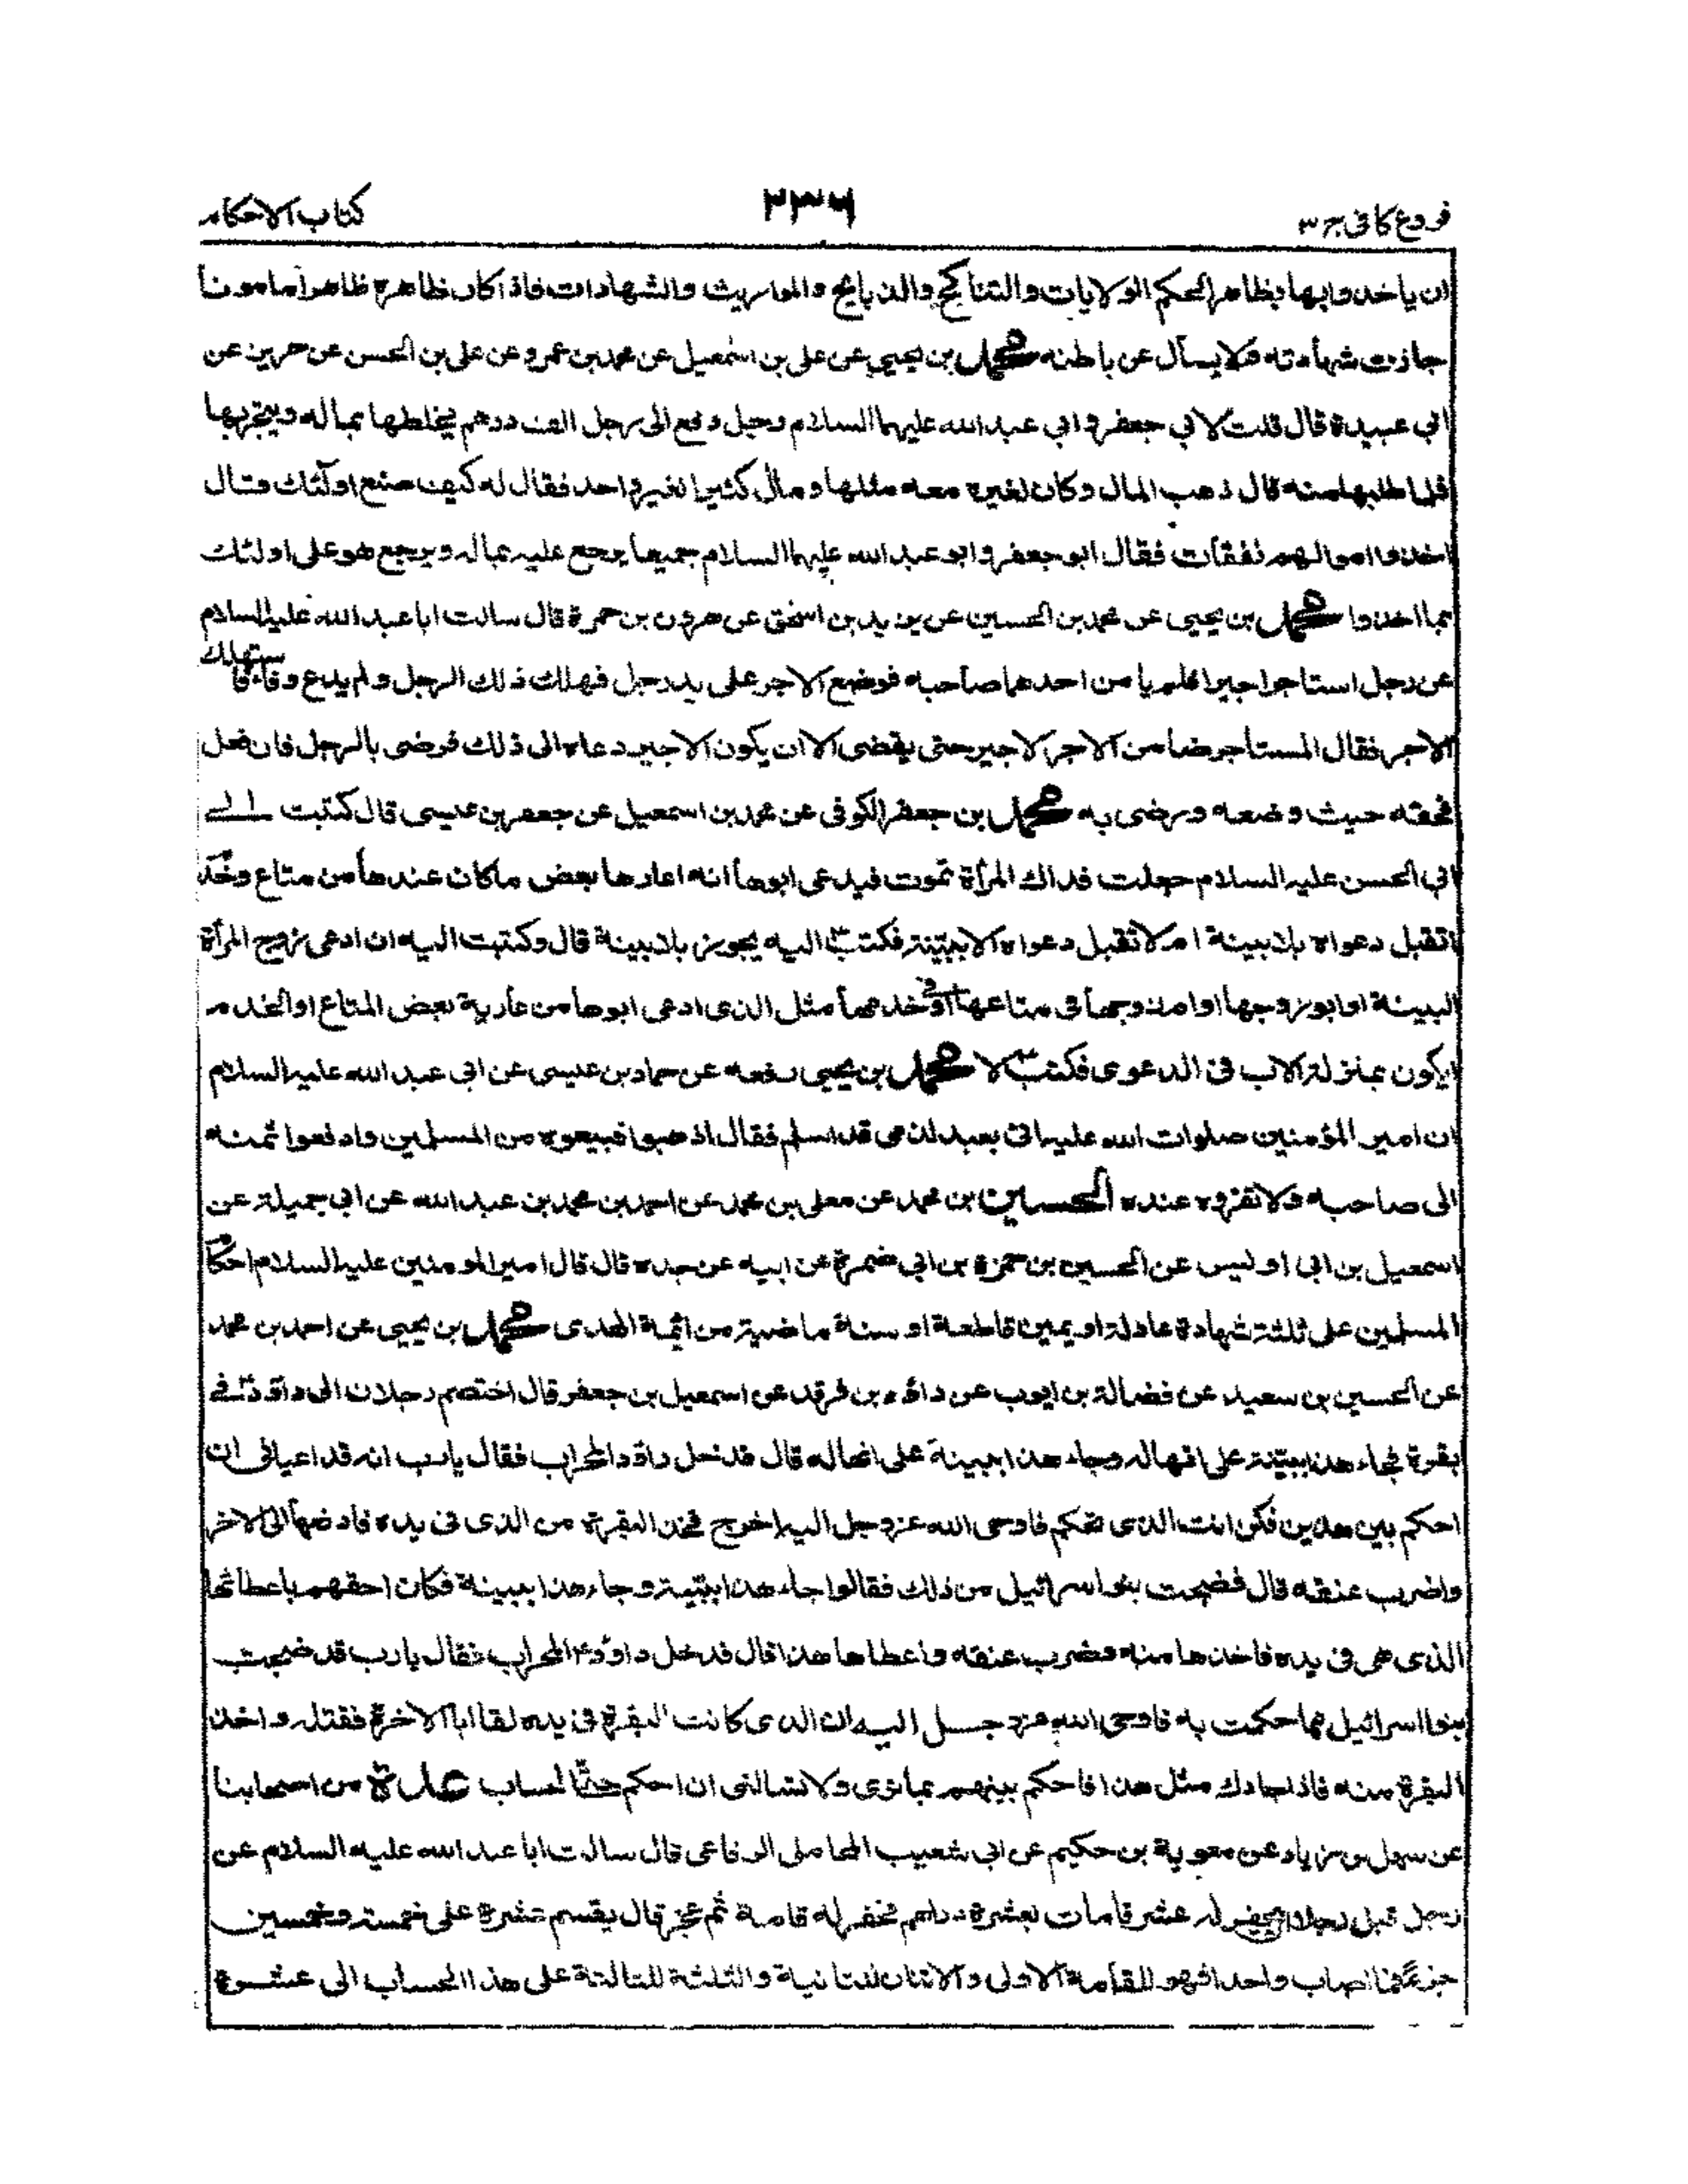 فروع كافى ج ٣
٢٣٦
كتاب الاحكام
ان ياخذوا بها بظاهر الحكم الولايات والتناكح والذبايح والمواريث والشهادات فاذا كان ظاهره ظاهرا مامونا
جازت شهادته ولا يسأل عن باطنه محمد بن يحيى عن على بن اسمعيل عن محمد بن عمرو عن على بن الحسن عن حريز عن
ابى عبيدة قال قلت لابي جعفر و ابي عبد الله عليهما السلام رجل دفع الى رجل الف درهم يخلطها بماله ويتجر بها
فلما طلبها منه قال ذهب المال وكان لغيره معه مثلها ومال كثير لغير واحد فقال له كيف صنع اولئك قال
اخذوا اموالهم نفقات فقال ابو جعفر و ابو عبد الله عليهما السلام جميعا يرجع عليه بماله ويرجع هو على اولئك
بما اخذوا محمد بن يحيى عن محمد بن الحسين عن يزيد بن اسحق عن هرون بن حمزة قال سالت ابا عبد الله عليه السلام
عن رجل استاجر اجيرا فلم يا من احدهما صاحبه فوضع الاجر على يد رجل فهلك ذلك الرجل ولم يدع وفاء فا ستهلك
الاجر فقال المستاجر ضامن لاجر الاجير حتى يقضى الا ان يكون الاجير دعاه الى ذلك فرضى بالرجل فان فعل
فحقه حيث وضعه ورضى به محمد بن جعفر الكوفى عن محمد بن اسمعيل عن جعفر بن عيسى قال كتبت الى
ابى الحسن عليه السلام جعلت فداك المرأة تموت فيدعى ابوها انه اعارها بعض ماكان عندها من متاع وخدم
اتقبل دعواه بلا بينة ام لا تقبل دعواه الا ببينة فكتب اليه يجوز بلا بينة قال وكتبت اليه ان ادعى زوج المرأة
الميتة او ابو زوجها او ام زوجها فى متاعها او فى خدمها مثل الذى ادعى ابوها من عارية بعض المتاع او الخدم
ايكون بمنزلة الاب فى الدعوى فكتب لا محمد بن يحيى رفعه عن حماد بن عيسى عن ابى عبد الله عليه السلام
ان امير المؤمنين صلوات الله عليه اتى بعبد لذمى قد اسلم فقال اذهبوا فبيعوه من المسلمين وادفعوا ثمنه
الى صاحبه ولا تقروه عنده الحسين بن محمد عن معلى بن محمد عن احمد بن محمد بن عبد الله عن ابى جميلة عن
اسمعيل بن ابى اوليس عن الحسين بن حمزة بن ابى ضمرة عن ابيه عن جده قال قال امير المومنين عليه السلام احكام
المسلمين على ثلثة شهادة عادلة او يمين قاطعة او سنة ماضية من ائمة الهدى محمد بن يحيى عن احمد بن محمد
عن الحسين بن سعيد عن فضالة بن ايوب عن داؤد بن فرقد عن اسمعيل بن جعفر قال اختصم رجلان الى داؤد فى
بقرة فجاء هذا ببينة على انها له وجاء هذا ببينة على انها له قال فدخل داؤد المحراب فقال يا رب انه قد اعيانى ان
احكم بين هذين فكن انت الذى تحكم فاوحى الله عز وجل اليه اخرج فخذ البقرة من الذى فى يده فادفعها الى الاخر
واضرب عنقه قال فضجت بنو اسرائيل من ذلك فقالوا جاء هذا ببينة وجاء هذا ببينة فكان احقهم باعطائها
الذى هى فى يده فاخذها منه وضرب عنقه واعطاها هذا قال فدخل داؤد ع المحراب فقال يا رب قد ضجت
بنو اسرائيل مما حكمت به فاوحى الله عز وجل اليه ان الذى كانت البقرة فى يده لقى ابا الاخر فقتله واخذ
البقرة منه فاذا جاءك مثل هذا فاحكم بينهم بما ترى ولا تسالنى ان احكم حتى الحساب عدة من اصحابنا
عن سهل بن زياد عن معوية بن حكيم عن ابى شعيب المحاملى الرفاعى قال سالت ابا عبد الله عليه السلام عن
رجل قبل رجلا يحفر له عشر قامات بعشرة دراهم فحفر له قامة ثم عجز قال يقسم عشرة على خمسة وخمسين
جزءا فما اصاب واحدا فهو للقامة الاولى والاثنان للثانية والثلثة للثالثة على هذا الحساب الى عشرة